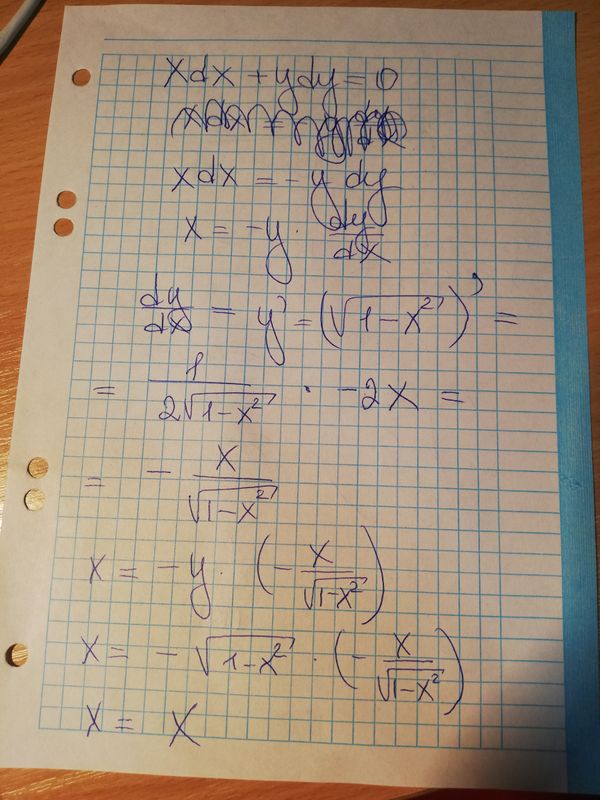 xdx + ydy = 0
xdx = -y dy
x = -y · dy/dx
dy/dx = y' = (√(1-x²))' =
= 1/(2√(1-x²)) · -2x =
= - x/√(1-x²)
x = -y · (- x/√(1-x²))
x = - √(1-x²) · (- x/√(1-x²))
x = x